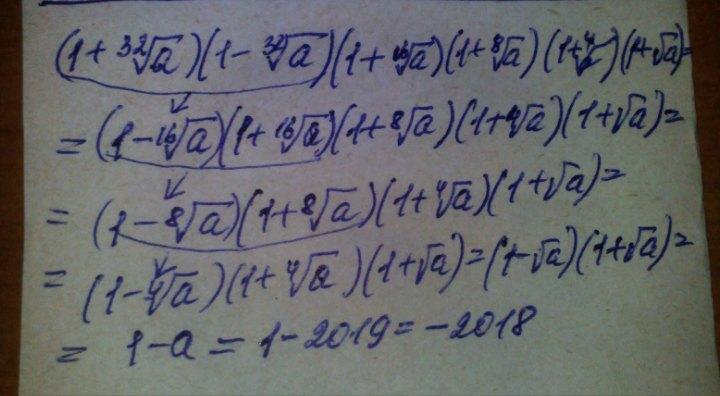 (1+³²√a)(1-³²√a)(1+¹⁶√a)(1+⁸√a)(1+⁴√a)(1+√a)=
=(1-¹⁶√a)(1+¹⁶√a)(1+⁸√a)(1+⁴√a)(1+√a)=
=(1-⁸√a)(1+⁸√a)(1+⁴√a)(1+√a)=
=(1-⁴√a)(1+⁴√a)(1+√a)=(1-√a)(1+√a)=
=1-a=1-2019=-2018